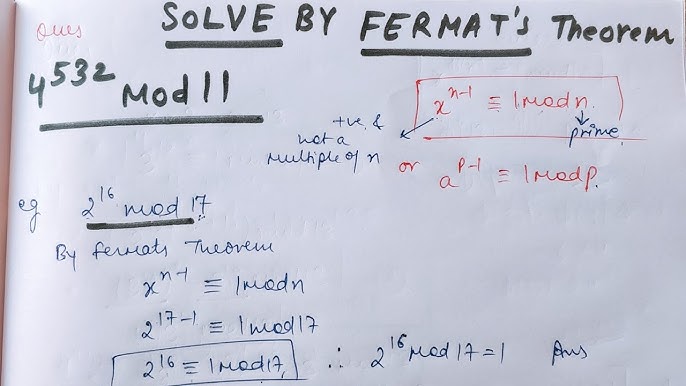 Ques
SOLVE BY FERMAT's Theorem
4^532 Mod 11
x^(n-1) ≡ 1 mod n.
prime
+ve &
not a
multiple of n
or a^(p-1) ≡ 1 mod p.
eg 2^16 mod 17
By fermats Theorem
x^(n-1) ≡ 1 mod n
2^(17-1) ≡ 1 mod 17
2^16 ≡ 1 mod 17, ∴ 2^16 mod 17 = 1 Ans